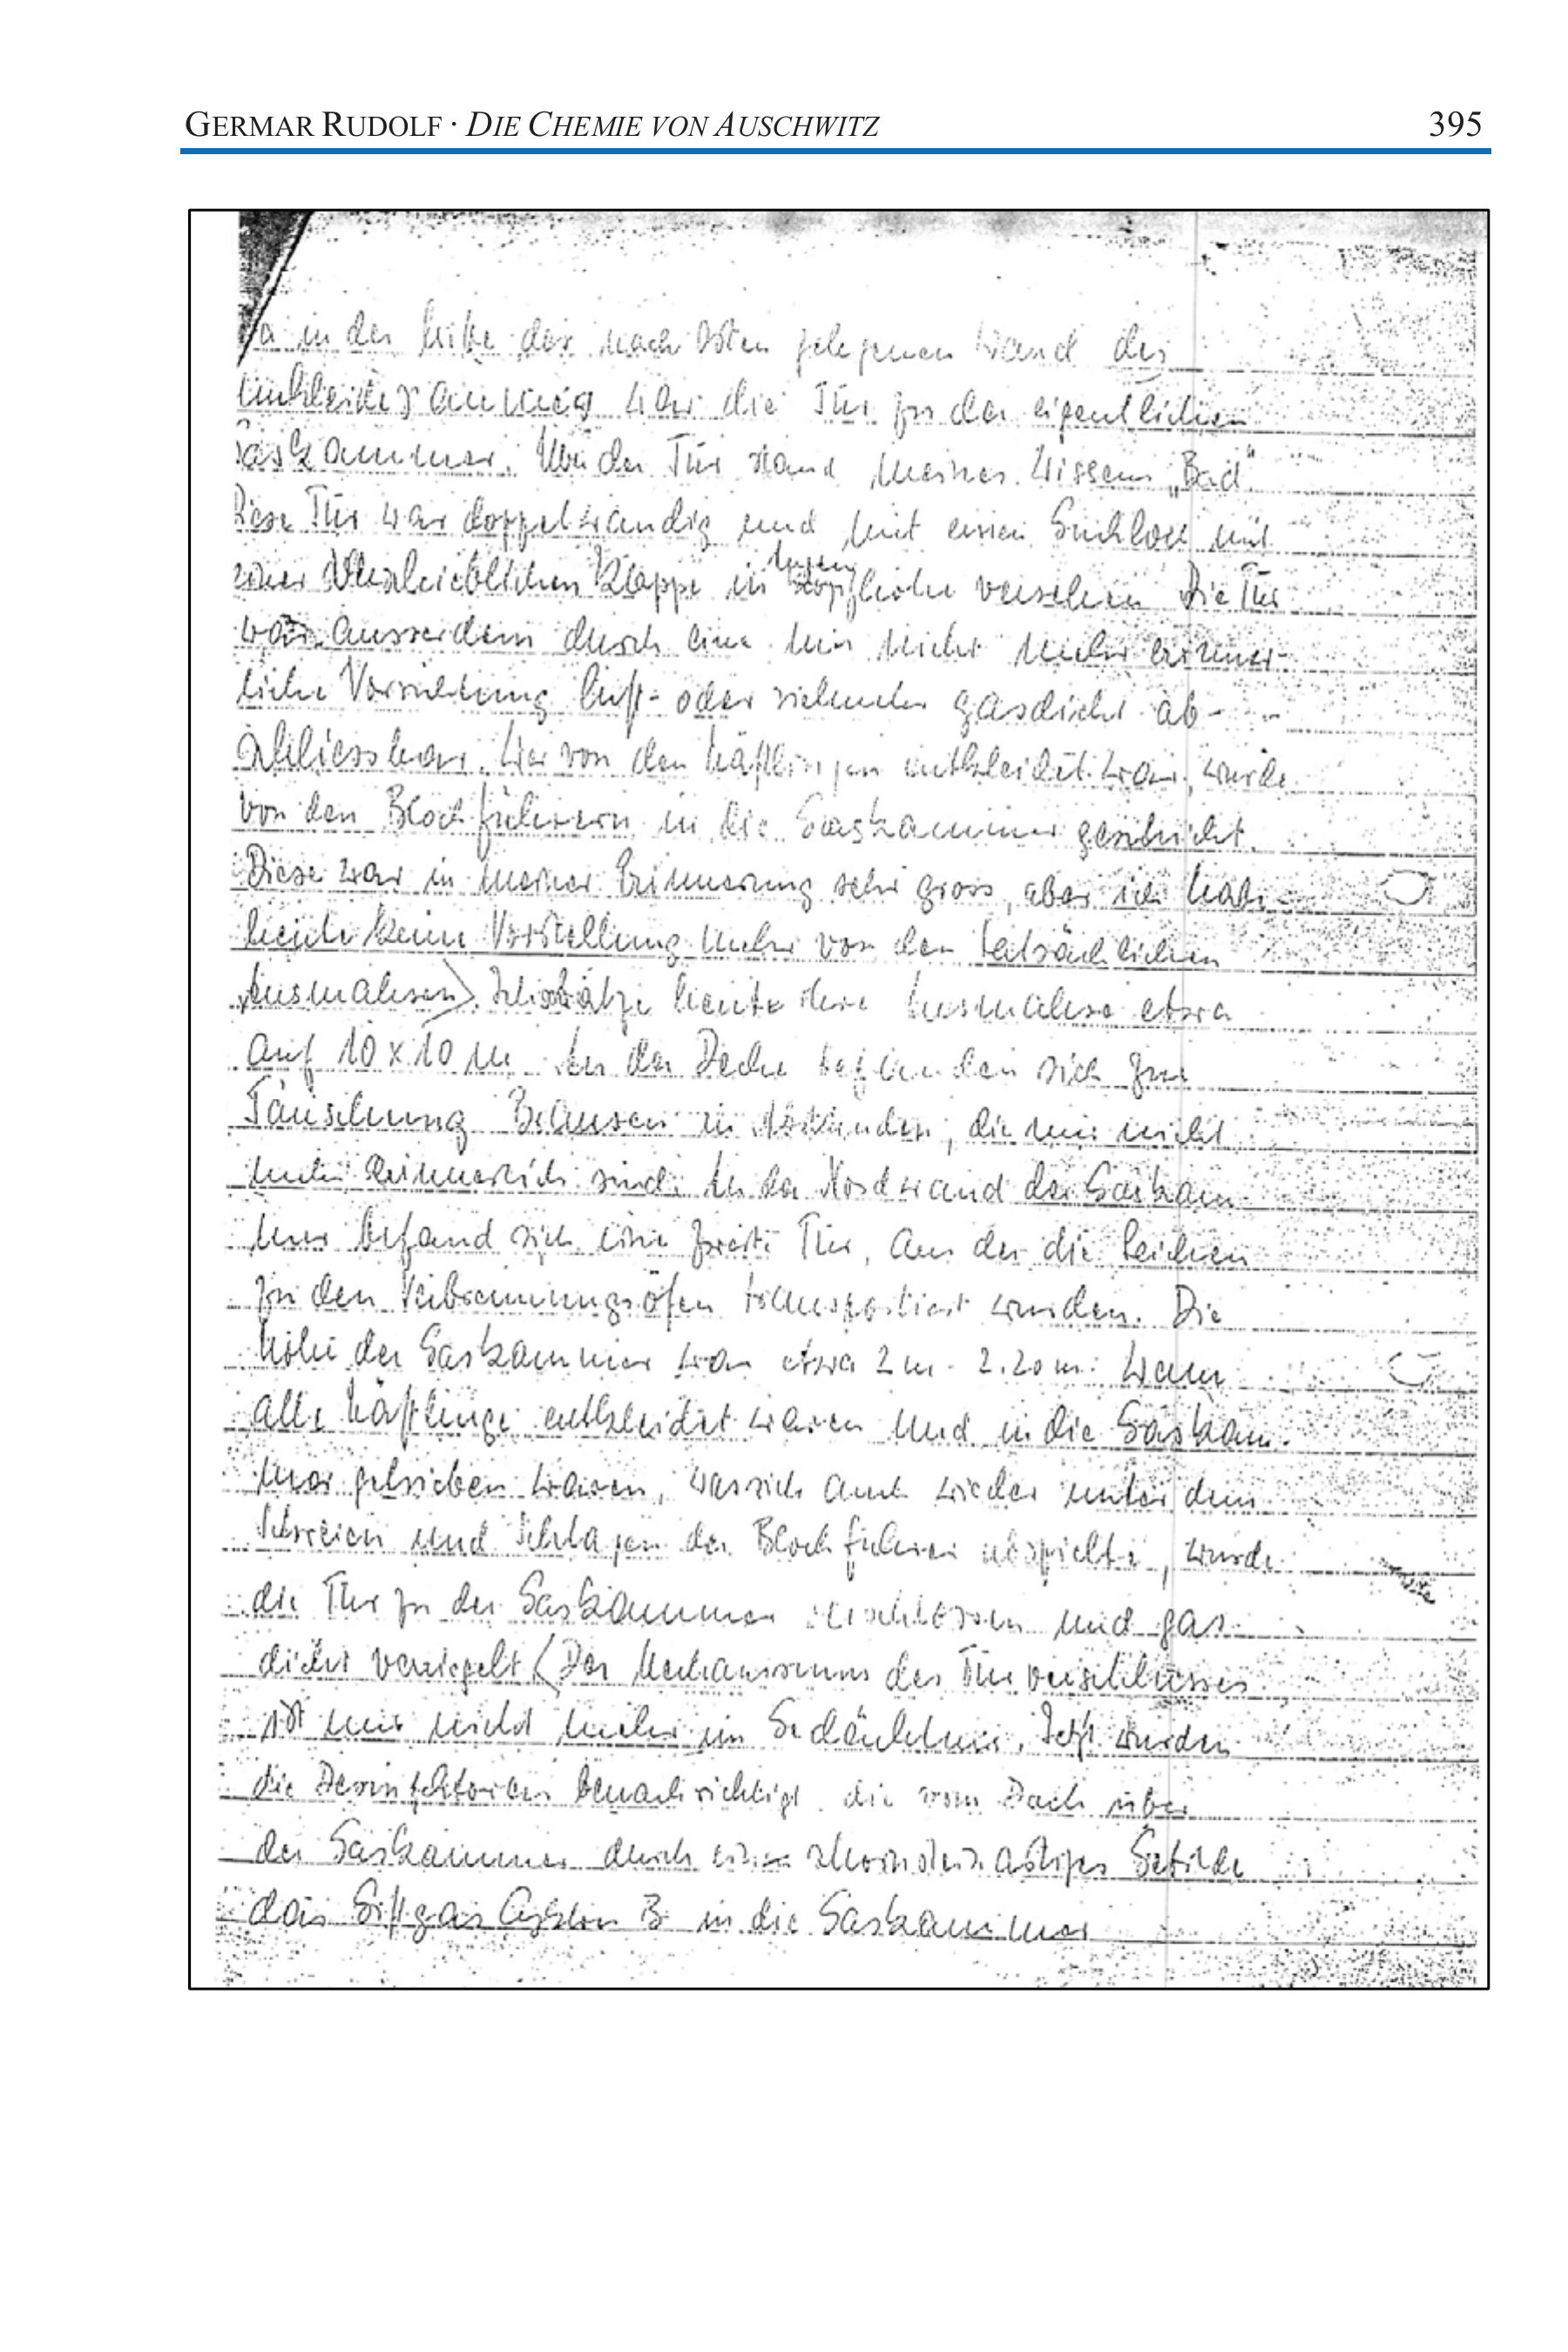 GERMAR RUDOLF · DIE CHEMIE VON AUSCHWITZ 395
in der Mitte der nach Osten gelegenen Wand des
war die Tür zu der eigentlichen
Gaskammer. Über der Tür stand meines Wissens „Bad".
Diese Tür war doppelwandig und mit einem Guckloch mit
einer Klappe in Augenhöhe versehen Die Tür
war ausserdem durch eine mir nicht mehr erinner-
liche Vorrichtung luft- oder vielmehr gasdicht ab-
schliessbar. Wer von den Häftlingen entkleidet war, wurde
von den Blockführern in die Gaskammer geschickt.
Diese war in meiner Erinnerung sehr gross, aber ich habe
heute keine Vorstellung mehr von den tatsächlichen
Ausmahsen). Ich schätze heute ihre Ausmahse etwa
auf 10 x 10 m. An der Decke befanden sich zur
Täuschung Brausen in Abständen, die mir nicht
mehr erinnerlich sind. In der Nordwand der Gaskam-
mer befand sich eine zweite Tür, aus der die Leichen
zu den Verbrennungsöfen transportiert wurden. Die
Höhe der Gaskammer war etwa 2 m - 2.20 m. Wenn
alle Häftlinge entkleidet waren und in die Gaskam-
mer getrieben waren, was sich auch wieder unter dem
Schreien und Schlagen der Blockführer abspielte, wurde
die Tür zu der Gaskammer verschlossen und gas-
dicht verriegelt (Der Mechanismus des Türverschlusses
ist mir nicht mehr im Gedächtnis. Jetzt wurden
die Desinfektoren benachrichtigt, die vom Dach über
der Gaskammer durch ein schornsteinartiges Gebilde
das Giftgas Cyklon B in die Gaskammer